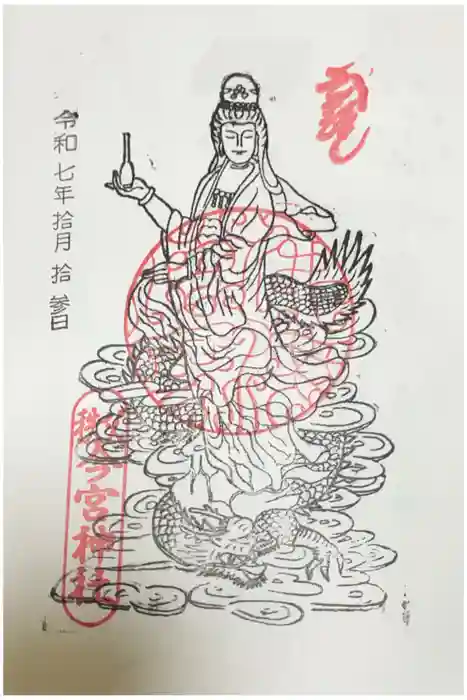 龍
令和七年拾月拾参日
秩父今宮神社